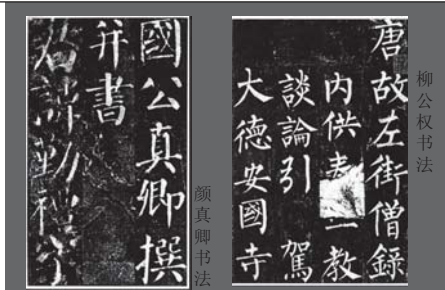 國公真卿撰
并書
君諱勤禮字
颜真卿书法
唐故左街僧錄
内供奉教
談論引 駕
大德安國寺
柳公权书法